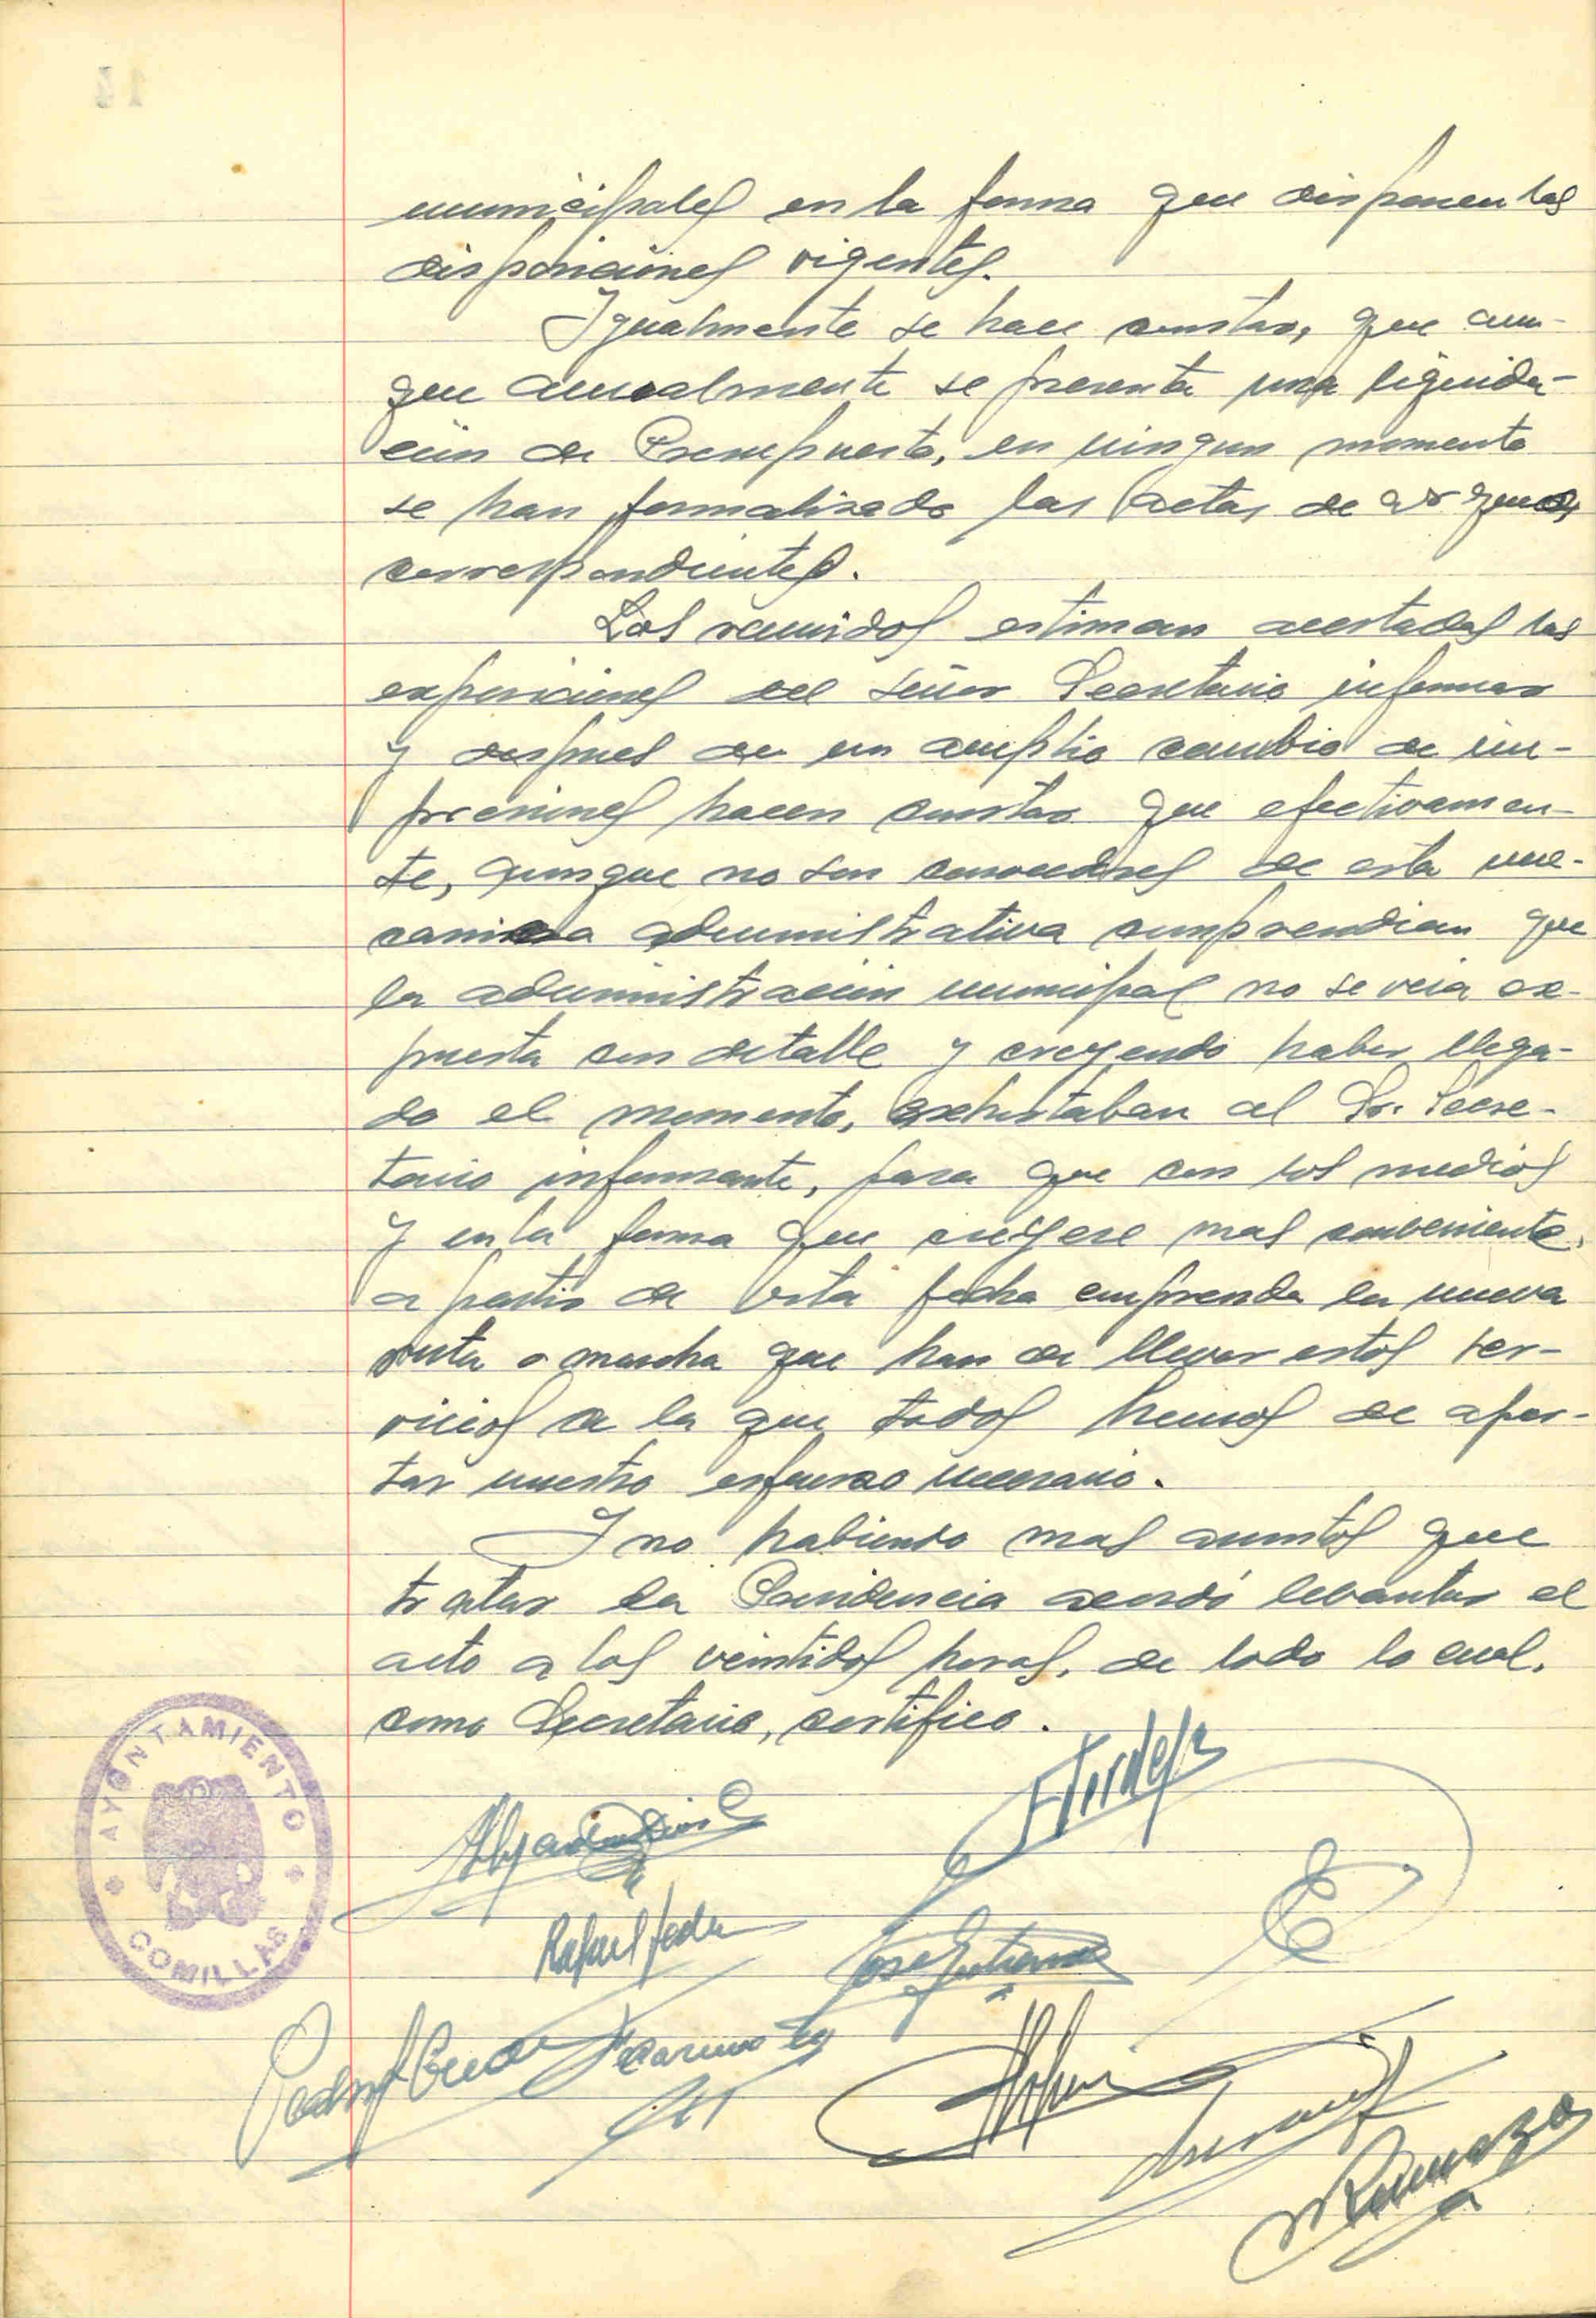 municipales en la forma que disponen las
disposiciones vigentes.
Igualmente se hace constar, que aun-
que anualmente se presenta una liquida-
ción de Presupuesto, en ningun momento
se han formalizado las actas de arqueos
correspondientes.
Los reunidos estiman acertadas las
exposiciones del señor Secretario informar
y despues de un amplio cambio de im-
presiones hacen constar que efectivamen-
te, aunque no son conocedores de esta me-
canica administrativa comprendian que
la administración municipal no se veia ex-
puesta con detalle y creyendo haber llega-
do el momento, exhortaban al Sr. Secre-
tario informante, para que con los medios
y en la forma que creyese mas conbeniente,
a partir de esta fecha emprenda la nueva
ruta o marcha que han de llevar estos ser-
vicios a la que todos hemos de apor-
tar nuestro esfuerzo necesario.
Y no habiendo mas asuntos que
tratar la Presidencia acordó lebantar el
acto a las veintidos horas, de todo lo cual,
como Secretario, certifico.
AYUNTAMIENTO
COMILLAS
Rafael
Jose Gutierrez
Pedro
14